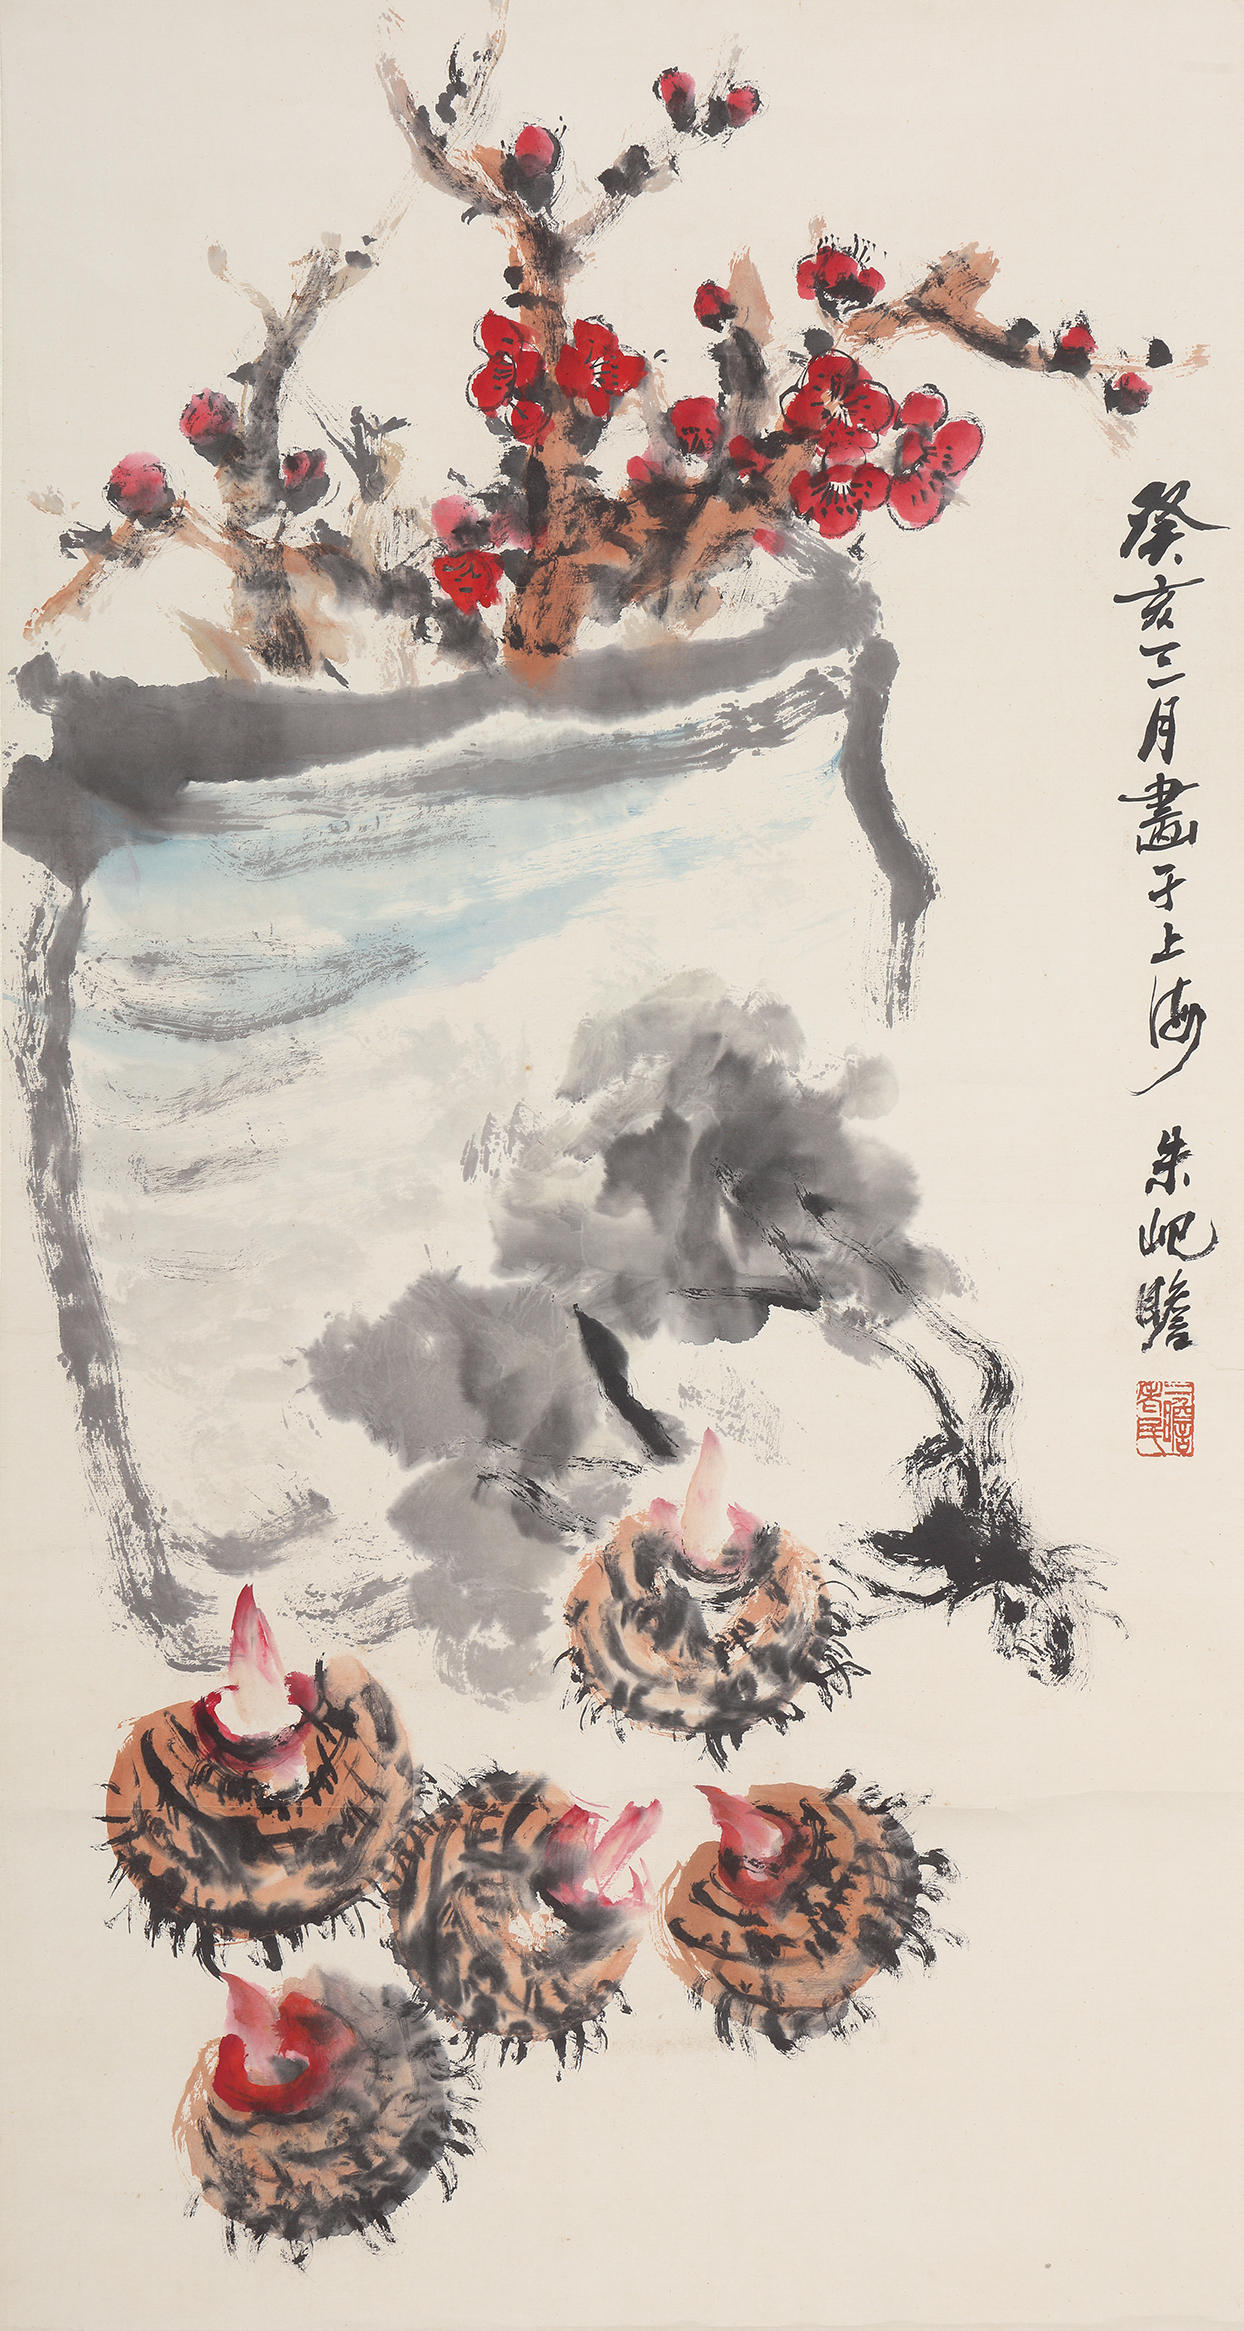 癸亥三月畫于上海 朱屺瞻